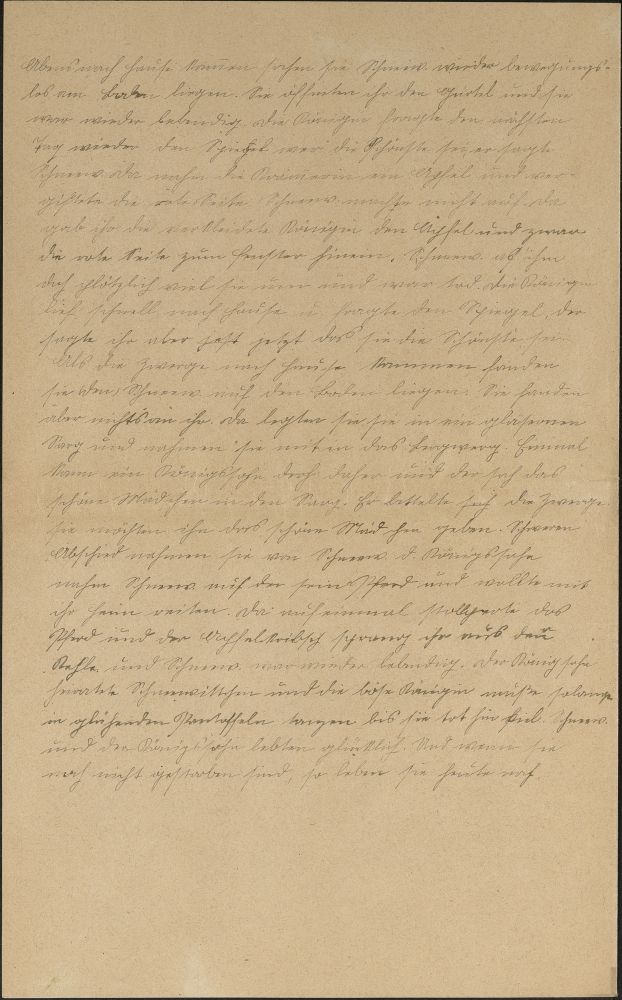 Abens nach Hause kamen sahen sie Schneew. wieder bewegungs-
los am Boden liegen. Sie öffneten ihr den Gürtel und sie
war wieder lebendig. Die Königin fragte den nächsten
Tag wieder den Spiegel wer die Schönste sei, er sagte
Schneew. Da nahm die Königin ein Apfel und ver-
giftete die rote Seite. Schneew. machte nicht auf. Da
gab ihr die verkleidete Königin den Apfel und zwar
die rote Seite zum Fenster hinein. Schneew. aß ihn
doch plötzlich viel sie um und war tod. Die Königin
lief schnell nach Hause u. fragte den Spiegel, der
sagte ihr aber jetzt das sie die Schönste sei.
Als die Zwerge nach Hause kammen fanden
sie den Schneew. auf den Boden liegen. Sie fanden
aber nichts an ihr. Da legten sie sie in ein gläsernen
Sarg und nahmen sie mit in das Bergwerg. Einmal
kam ein Königssohn daher und der sah das
schöne Mädchen in den Sarg. Er bettelte die Zwerge
sie möchten ihn das schöne Mädchen geben. Schweren
Abschied nahmen sie von Schneew. d. Königssohn
nahm Schneew. auf der sein Pferd und wollte mit
ihr heim reiten. Da auf einmal stollperte das
Pferd und der Apfelkribsch sprang ihr aus den
Kehle und Schneew. war wieder lebendig. Der Königsohn
heiratete Schneewittchen und die böse Königin mußte solange
in glühenden Pantoffeln tanzen bis sie tot hin fiel. Schneew.
und der Königssohn lebten glücklich. Und wenn sie
noch nicht gestorben sind, so leben sie heute noch.